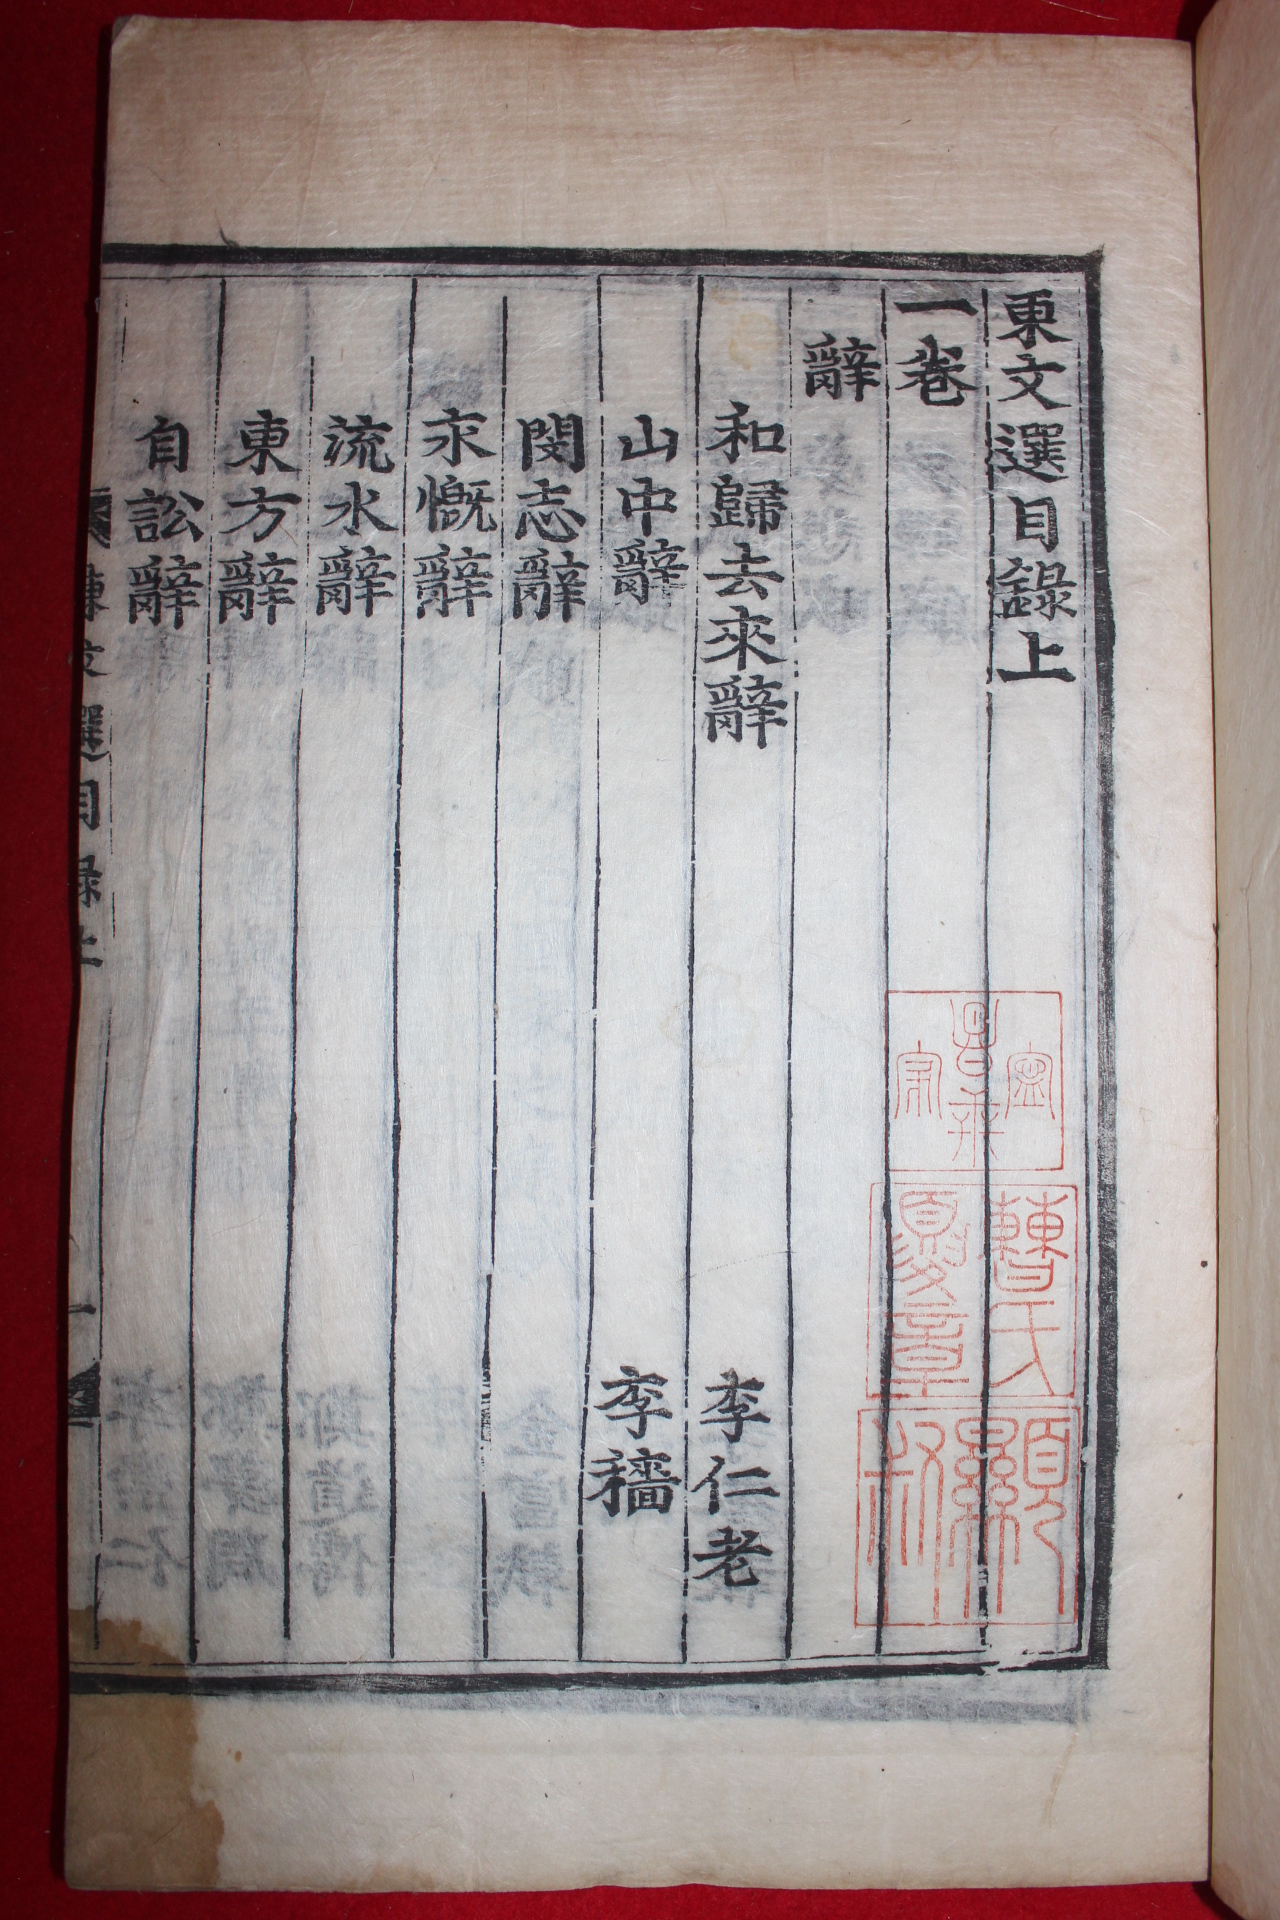 東文選目錄上
一卷
辭
和歸去來辭 李仁老
山中辭 李穡
閔志辭
永慨辭
流水辭
東方辭
自訟辭
東文選目錄上 一